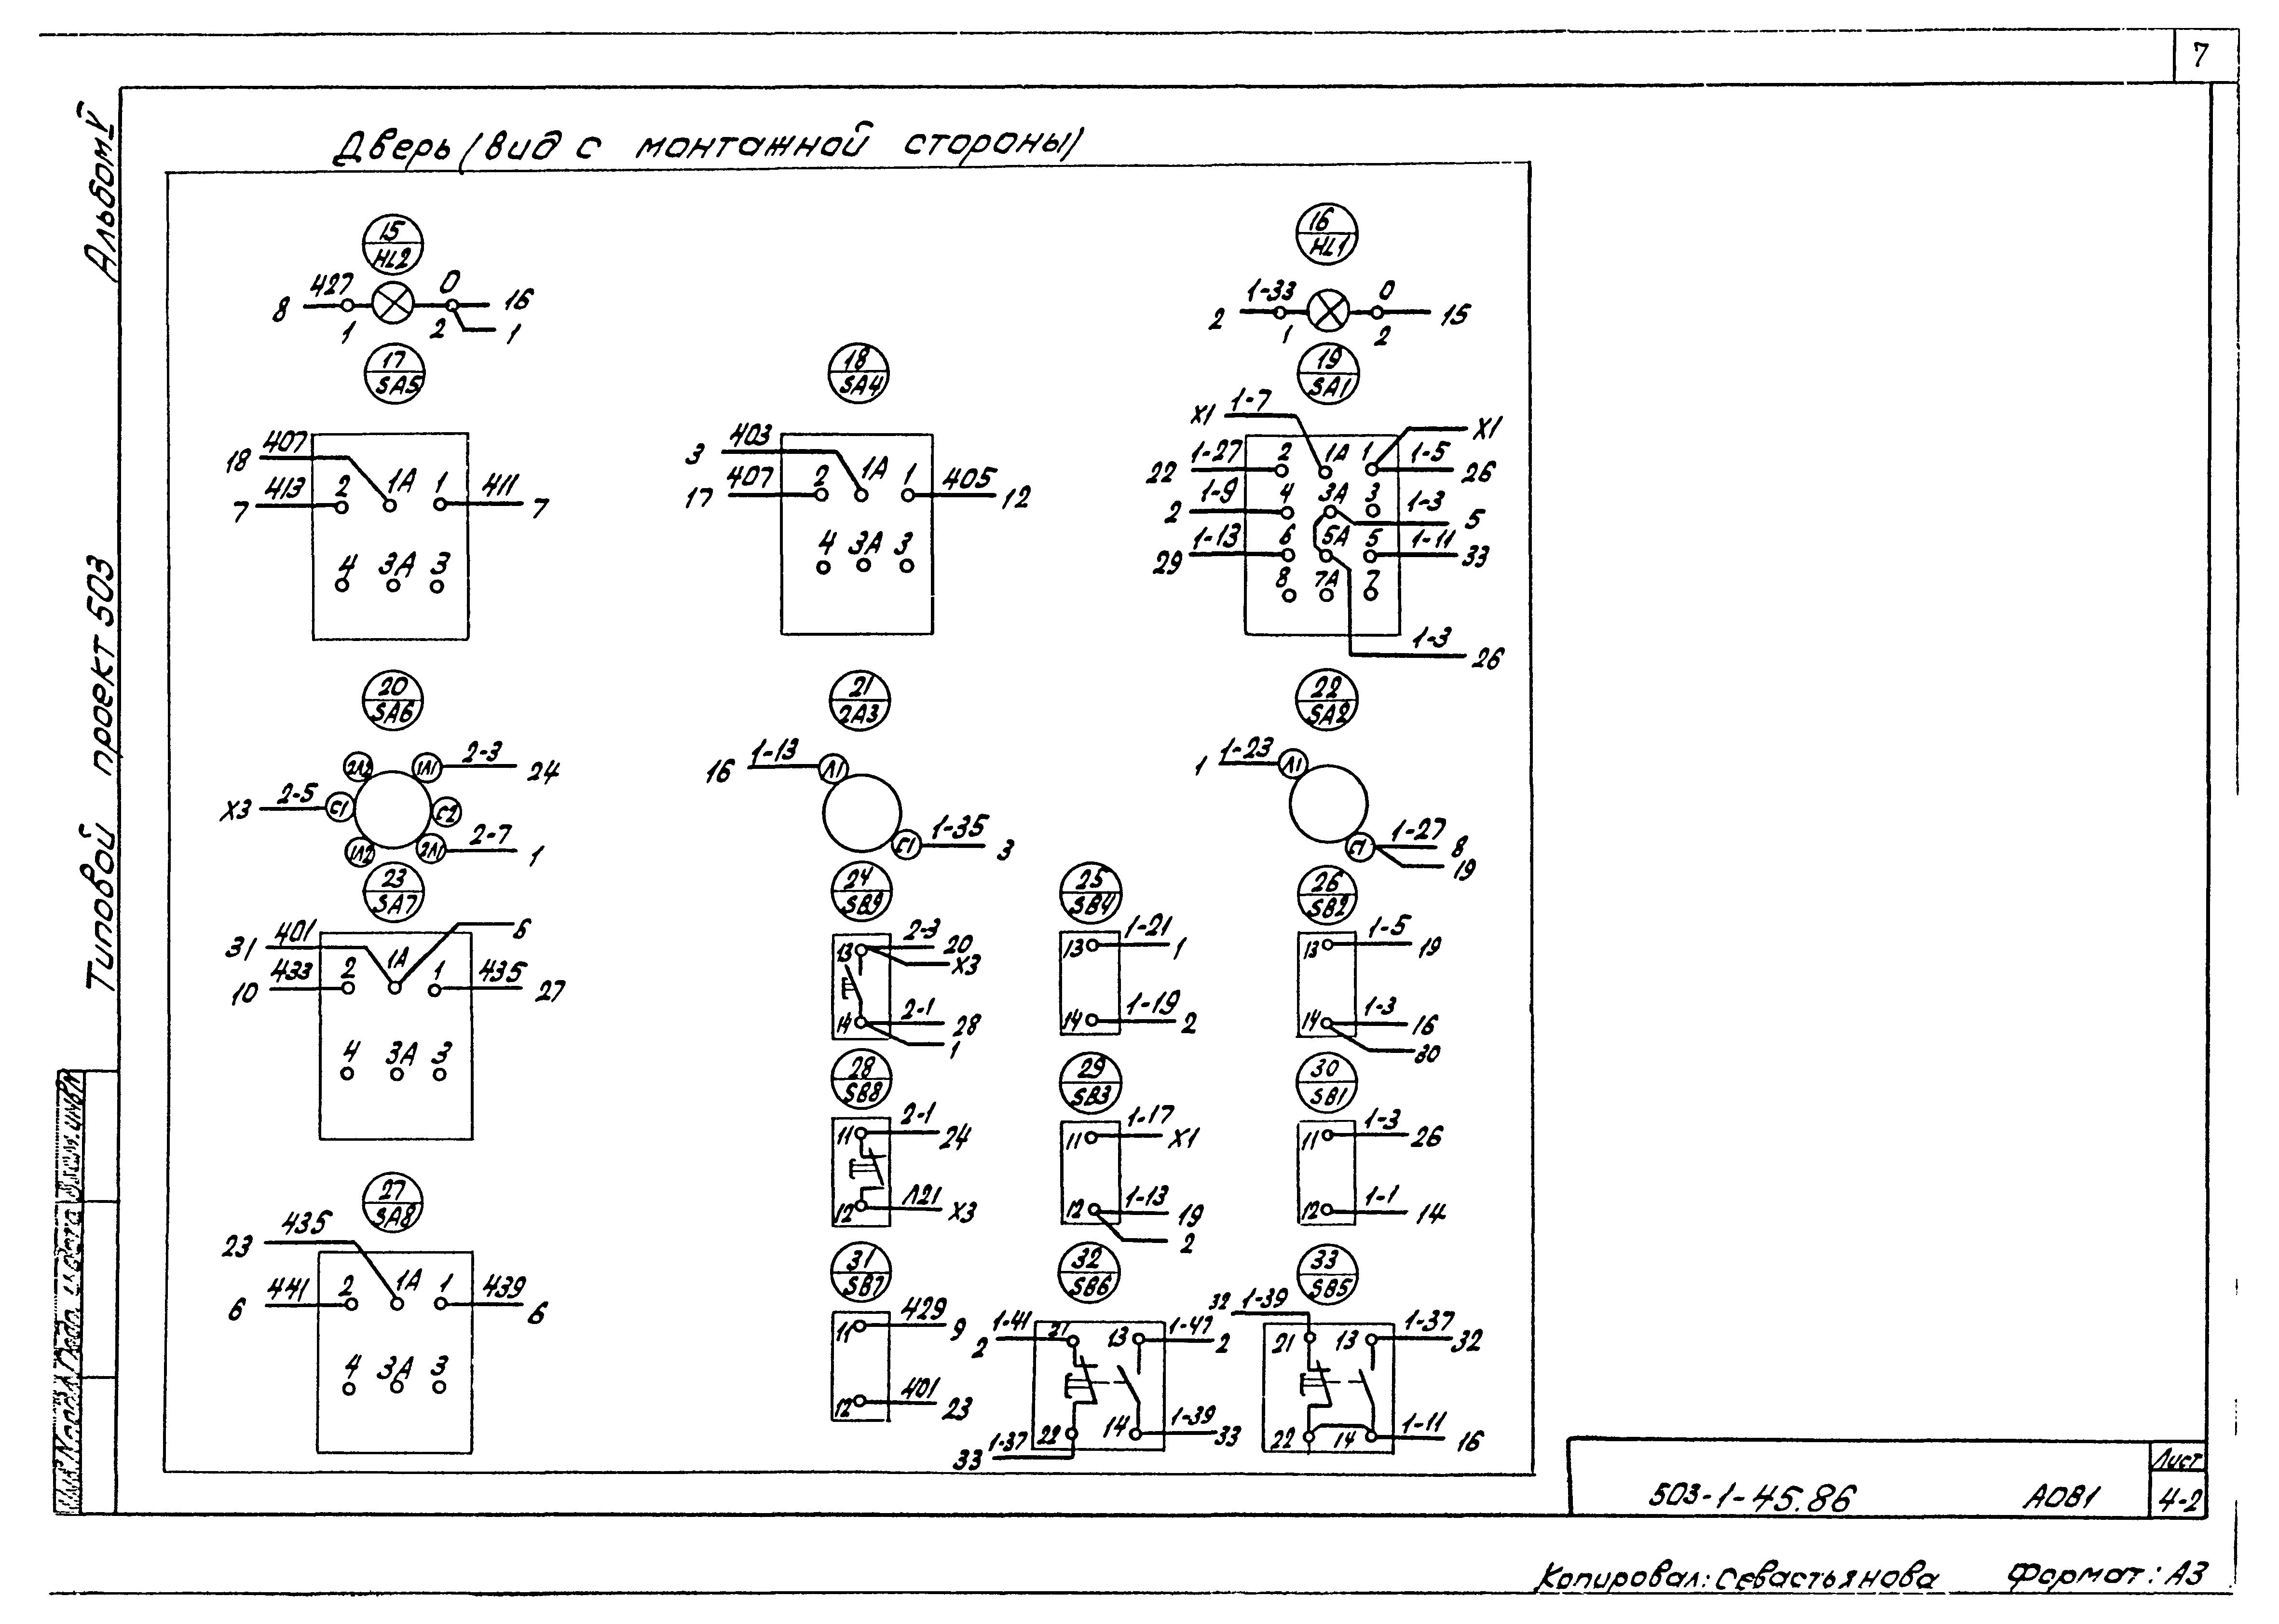 7
Альбом V
Типовой проект 503
Дверь (вид с монтажной стороны)
15
HL2
8 427 1 2 0 16
1
16
HL1
2 1-33 1 2 0 15
17
SA5
18 407
7 413 2 1А 1 411 7
4 3А 3
18
SA4
3 403
17 407 2 1А 1 405 12
4 3А 3
19
SA1
X1 1-7 X1
22 1-27 2 1А 1 1-5 26
2 1-9 4 3А 3 1-3 5
29 1-13 6 5А 5 1-11 33
8 7А 7
1-3 26
20
SA6
2Л2 1Л1 2-3 24
X3 2-5 С1 С2
1Л2 2Л1 2-7 1
21
2А3
16 1-13 Л1
С1 1-35 3
22
SA2
1 1-23 Л1
С1 1-27 8
19
23
SA7
31 401 6
10 433 2 1А 1 435 27
4 3А 3
24
SB9
13 2-3 20
X3
14 2-1 28
1
25
SB4
13 1-21 1
14 1-19 2
26
SB2
13 1-5 19
14 1-3 16
30
27
SA8
23 435
6 441 2 1А 1 439 6
4 3А 3
28
SB8
11 2-1 24
12 Л21 X3
29
SB3
11 1-17 X1
12 1-13 19
2
30
SB1
11 1-3 26
12 1-1 14
31
SB7
11 429 9
12 401 23
32
SB6
2 1-41 21 13 1-47 2
33 1-37 22 14 1-39 33
33
SB5
32 1-39 21 13 1-37 32
22 14 1-11 16
503-1-45.86 АОВ1
Лист
4-2
Копировал: Севастьянова Формат: А3